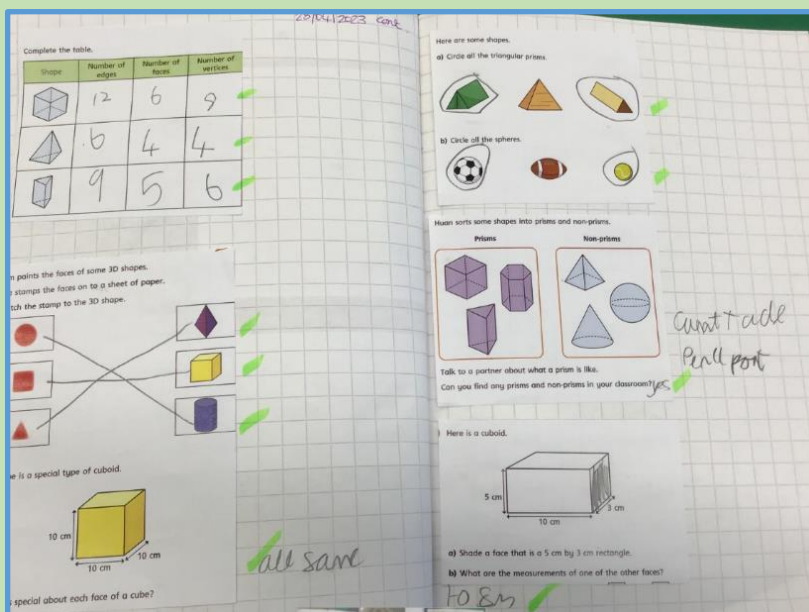 20/04/2023 cont
Complete the table.
Shape
Number of edges
Number of faces
Number of vertices
12 6 8
6 4 4
9 5 6
paints the faces of some 3D shapes.
stamps the faces on to a sheet of paper.
tch the stamp to the 3D shape.
e is a special type of cuboid.
10 cm
10 cm
10 cm
all same
special about each face of a cube?
Here are some shapes.
a) Circle all the triangular prisms.
b) Circle all the spheres.
Huan sorts some shapes into prisms and non-prisms.
Prisms
Non-prisms
Talk to a partner about what a prism is like.
Can you find any prisms and non-prisms in your classroom? yes
Penll port
Here is a cuboid.
5 cm
3 cm
10 cm
a) Shade a face that is a 5 cm by 3 cm rectangle.
b) What are the measurements of one of the other faces?